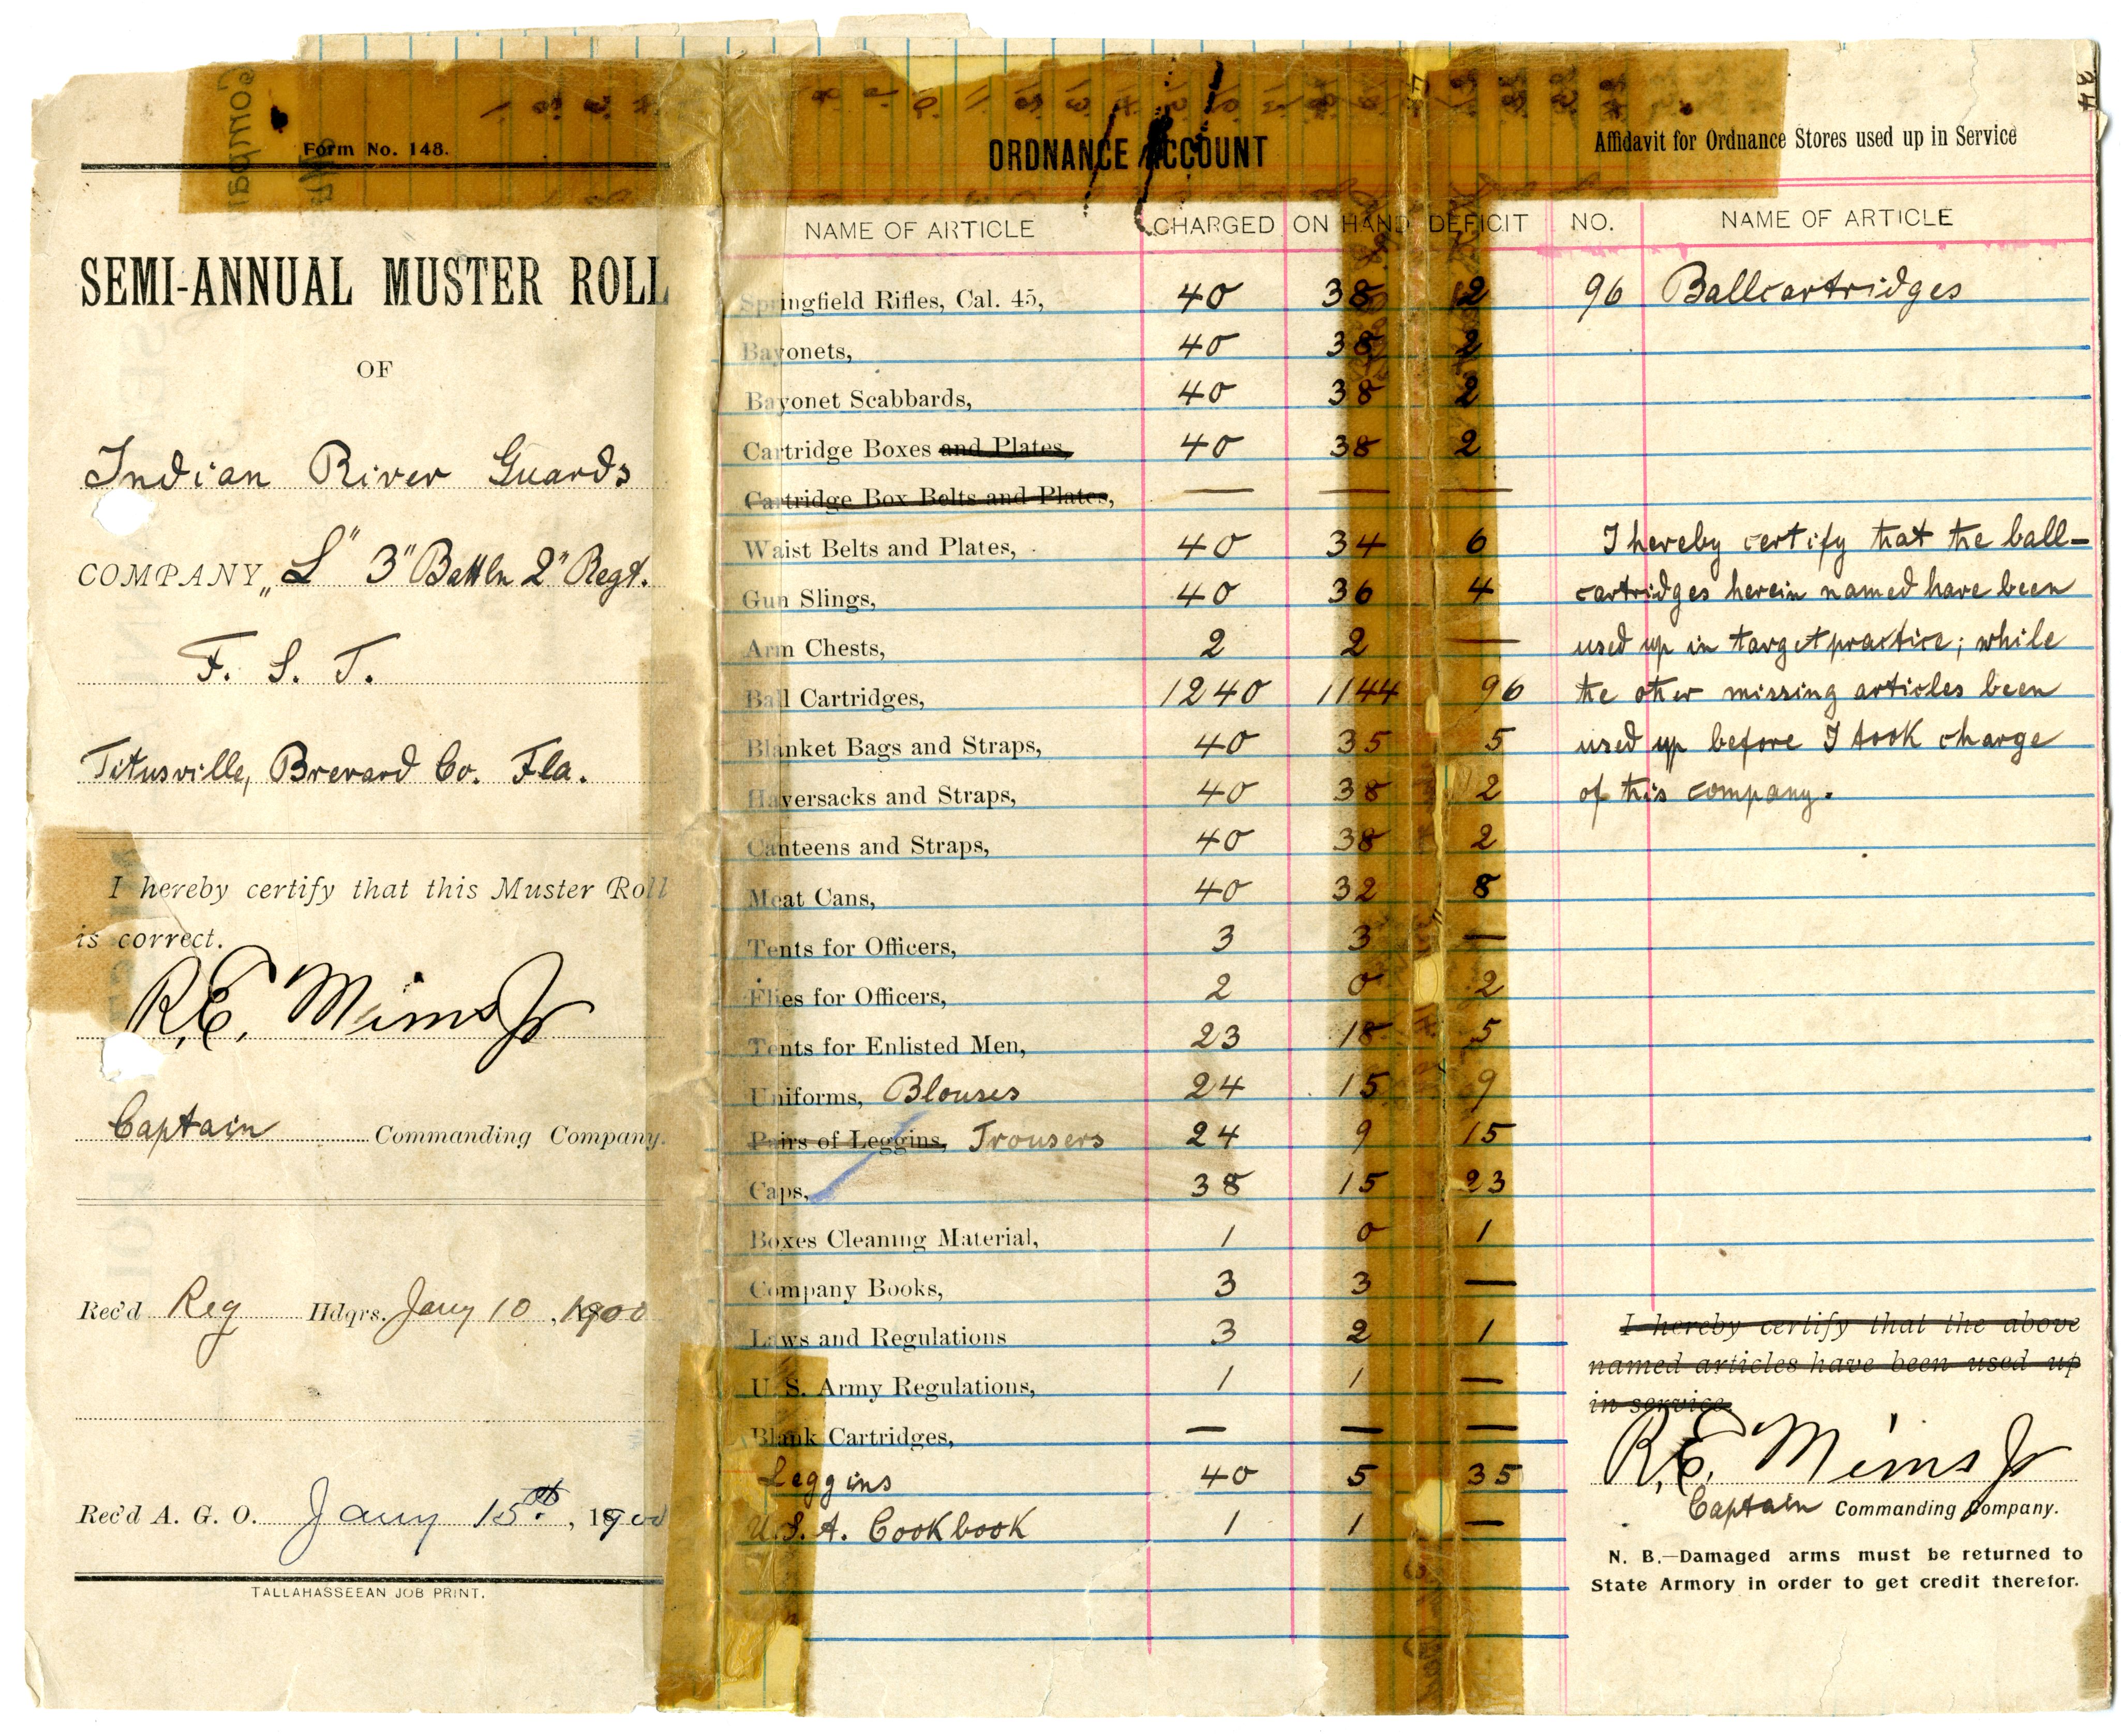 Form No. 148.
SEMI-ANNUAL MUSTER ROLL
OF
Indian River Guards
COMPANY „L" 3" Battln 2" Regt.
F. S. T.
Titusville, Brevard Co. Fla.
I hereby certify that this Muster Roll
is correct.
R.E. Mims Jr
Captain Commanding Company.
Rec'd Reg Hdqrs. Jany 10, 1900
Rec'd A. G. O. Jany 15th, 1900
TALLAHASSEEAN JOB PRINT.
ORDNANCE ACCOUNT
NAME OF ARTICLE CHARGED ON HAND DEFICIT
Springfield Rifles, Cal. 45, 40 38 2
Bayonets, 40 38 2
Bayonet Scabbards, 40 38 2
Cartridge Boxes and Plates, 40 38 2
Cartridge Box Belts and Plates, — — —
Waist Belts and Plates, 40 34 6
Gun Slings, 40 36 4
Arm Chests, 2 2 —
Ball Cartridges, 1240 1144 96
Blanket Bags and Straps, 40 35 5
Haversacks and Straps, 40 38 2
Canteens and Straps, 40 38 2
Meat Cans, 40 32 8
Tents for Officers, 3 3 —
Flies for Officers, 2 0 2
Tents for Enlisted Men, 23 18 5
Uniforms, Blouses 24 15 9
Pairs of Leggins, Trousers 24 9 15
Caps, 38 15 23
Boxes Cleaning Material, 1 0 1
Company Books, 3 3 —
Laws and Regulations 3 2 1
U. S. Army Regulations, 1 1 —
Blank Cartridges, — — —
Leggins 40 5 35
U.S.A. Cookbook 1 1 —
34
Affidavit for Ordnance Stores used up in Service
NO. NAME OF ARTICLE
96 Ballcartridges
I hereby certify that the ball-
cartridges herein named have been
used up in target practice; while
the other missing articles been
used up before I took charge
of this company.
I hereby certify that the above
named articles have been used up
in service.
R.E. Mims Jr
Captain Commanding Company.
N. B.—Damaged arms must be returned to
State Armory in order to get credit therefor.